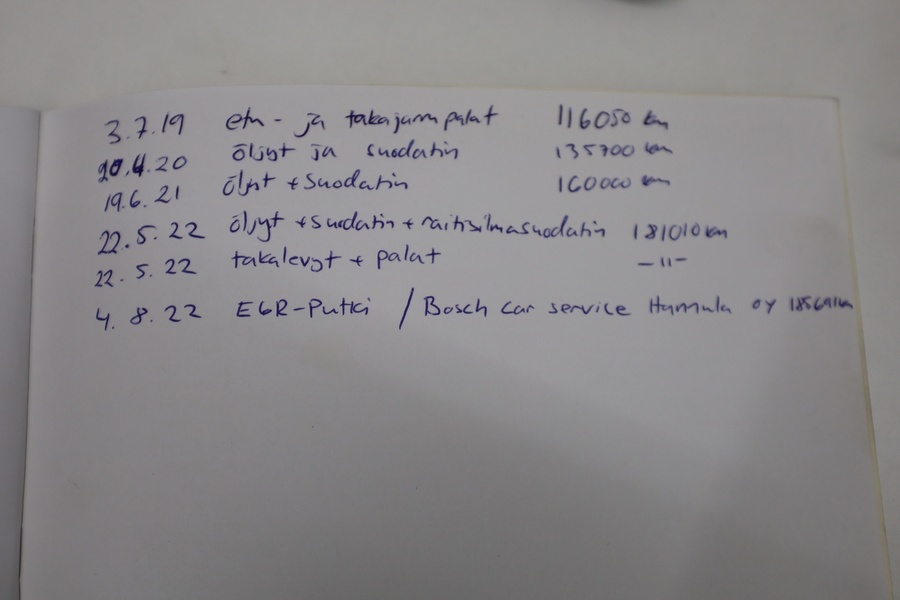 3.7.19 etu- ja takajarrupalat 116050 km
20.4.20 öljyt ja suodatin 135700 km
19.6.21 öljyt + suodatin 160000 km
22.5.22 öljyt + suodatin + raitisilmasuodatin 181010 km
22.5.22 takalevyt + palat -"-
4.8.22 EGR-Putki / Bosch car service Humula oy